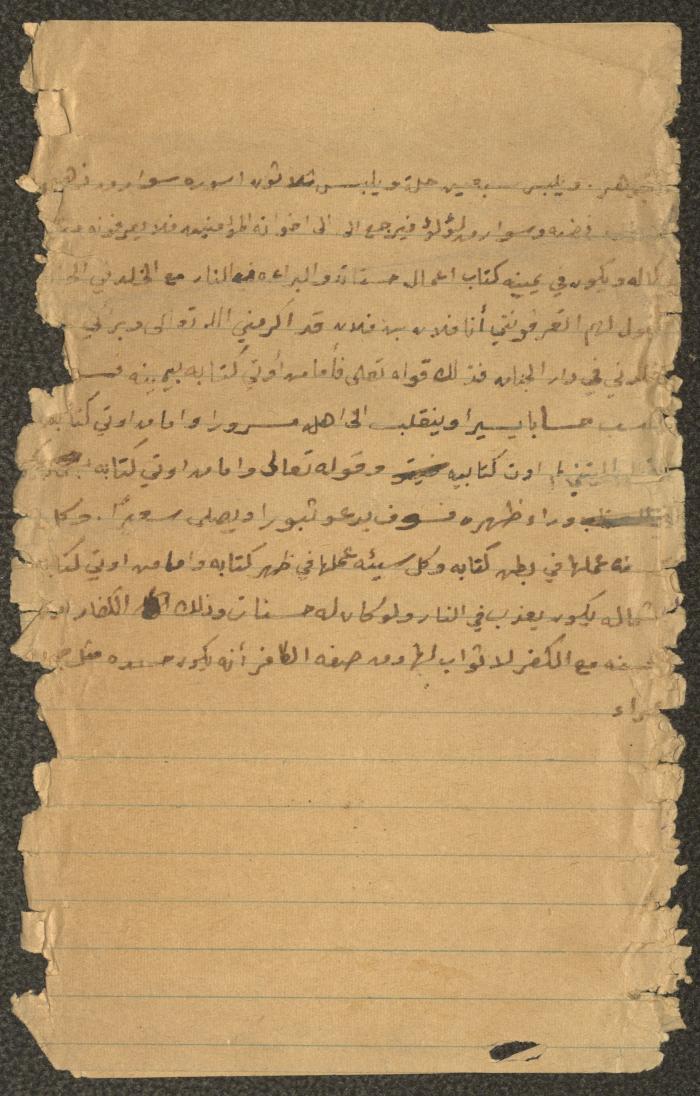 ويلبس سبعين حلة ويلبس ثلاثون اسوره سوار من ذهب
فضه وسوار من لؤلؤ فيرجع الى اخوانه المؤمنين فلا يعرفونه
ويكون في يمينه كتاب اعمال حسناته والبراءه من النار مع الخلد في
لهم اتعرفونني أنا فلان بن فلان قد اكرمني الله تعالى وبرأني
في دار الجنان فذلك قوله تعالى فأما من أوتي كتابه بيمينه
حسابا يسيرا وينقلب الى اهله مسرورا واما من اوتي كتابه
اوت كتابيه وقوله تعالى واما من اوتي كتابه
وراء ظهره فسوف يدعو ثبورا ويصلى سعيرًا. وكل
عملها في بطن كتابه وكل سيئه عملها في ظهر كتابه واما من اوتي كتابه
شماله يكون يعذب في النار ولو كان له حسنات وذلك الكفار
مع الكفر لا ثواب لها ومن صفه الكافر أنه يكون جسده مثل